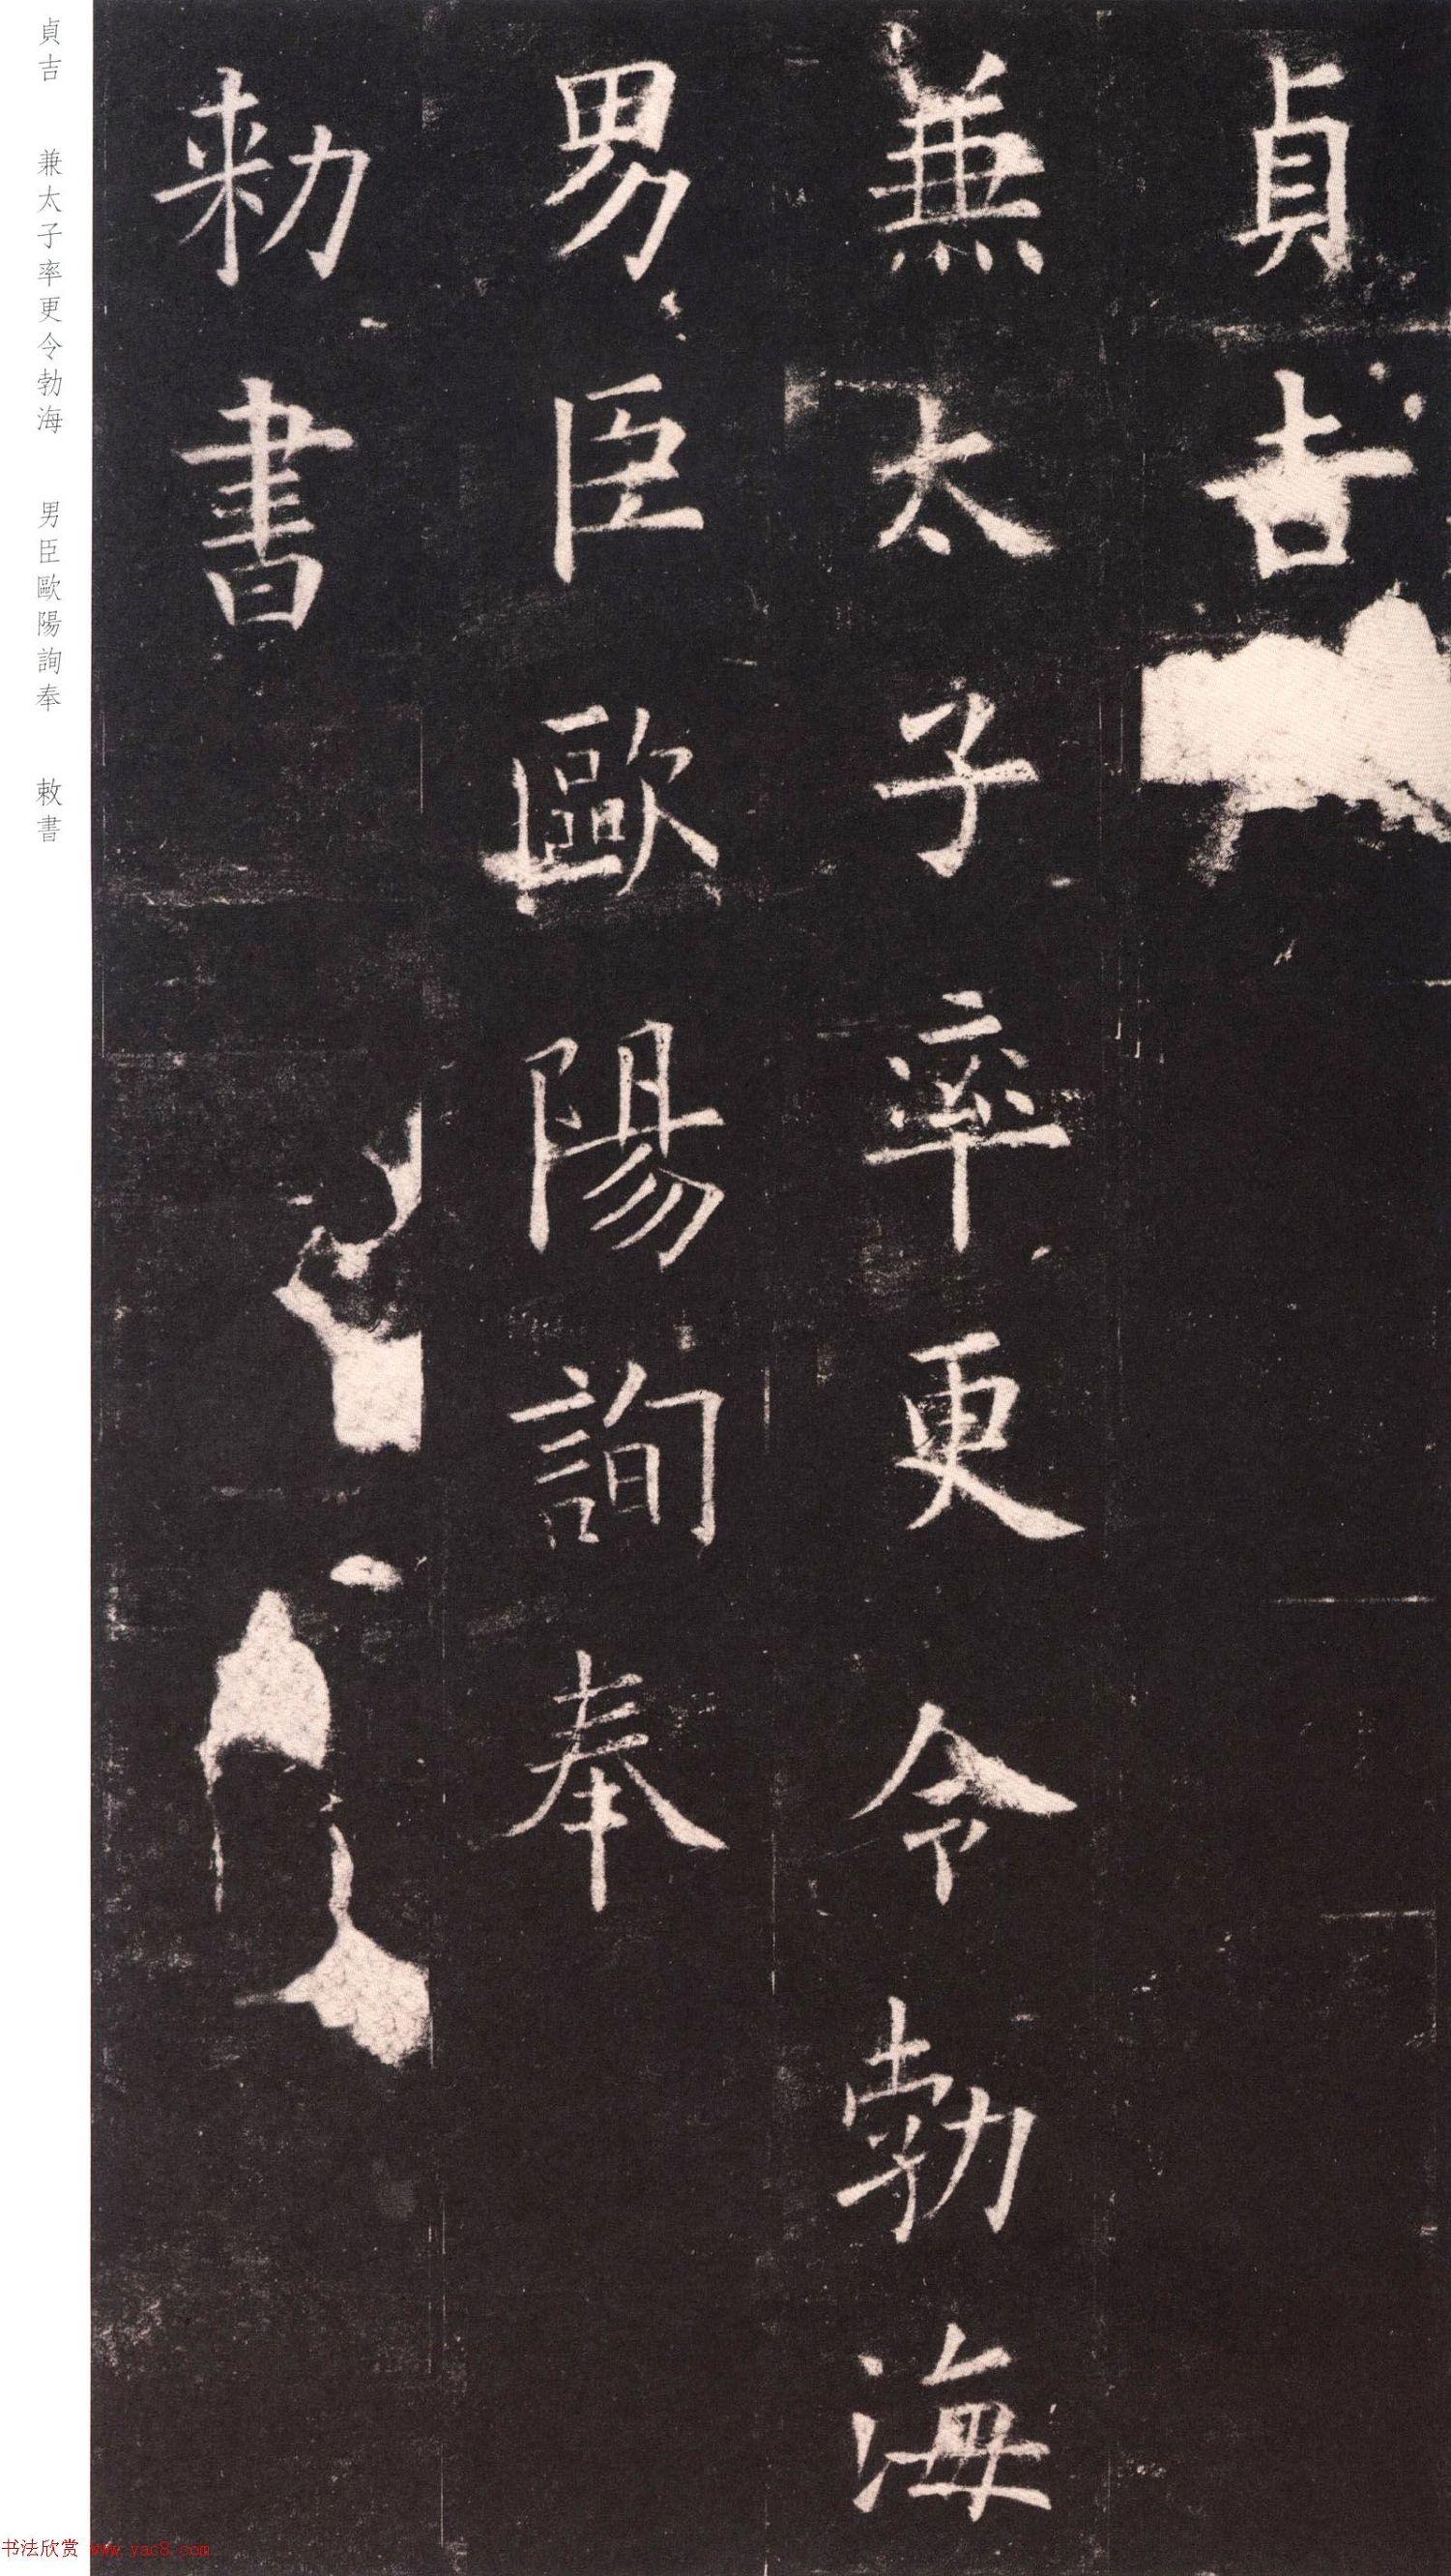 貞吉
兼太子率更令勃海
男臣歐陽詢奉
勑書
貞吉 兼太子率更令勃海 男臣歐陽詢奉 敕書
书法欣赏 www.yac8.com